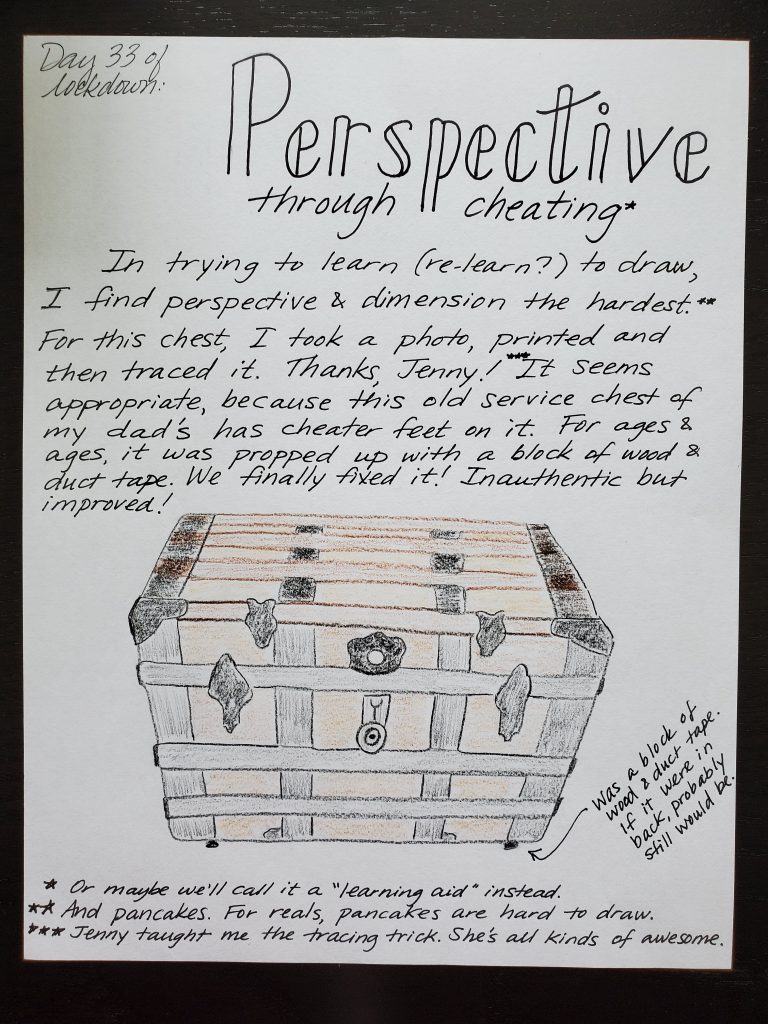 Day 33 of
lockdown:
Perspective
through cheating*
In trying to learn (re-learn?) to draw,
I find perspective & dimension the hardest.**
For this chest, I took a photo, printed and
then traced it. Thanks, Jenny!*** It seems
appropriate, because this old service chest of
my dad's has cheater feet on it. For ages &
ages, it was propped up with a block of wood &
duct tape. We finally fixed it! Inauthentic but
improved!
Was a block of
wood & duct tape.
If it were in
back, probably
still would be.
* Or maybe we'll call it a "learning aid" instead.
** And pancakes. For reals, pancakes are hard to draw.
*** Jenny taught me the tracing trick. She's all kinds of awesome.